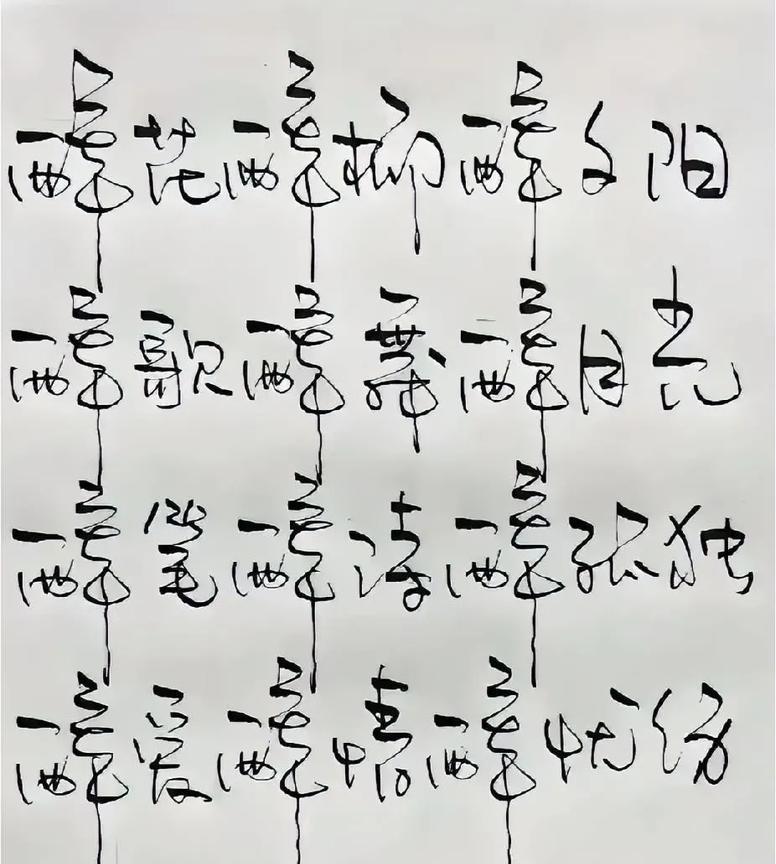 醉花醉柳醉夕阳
醉歌醉舞醉月光
醉笔醉诗醉孤独
醉爱醉情醉忧伤